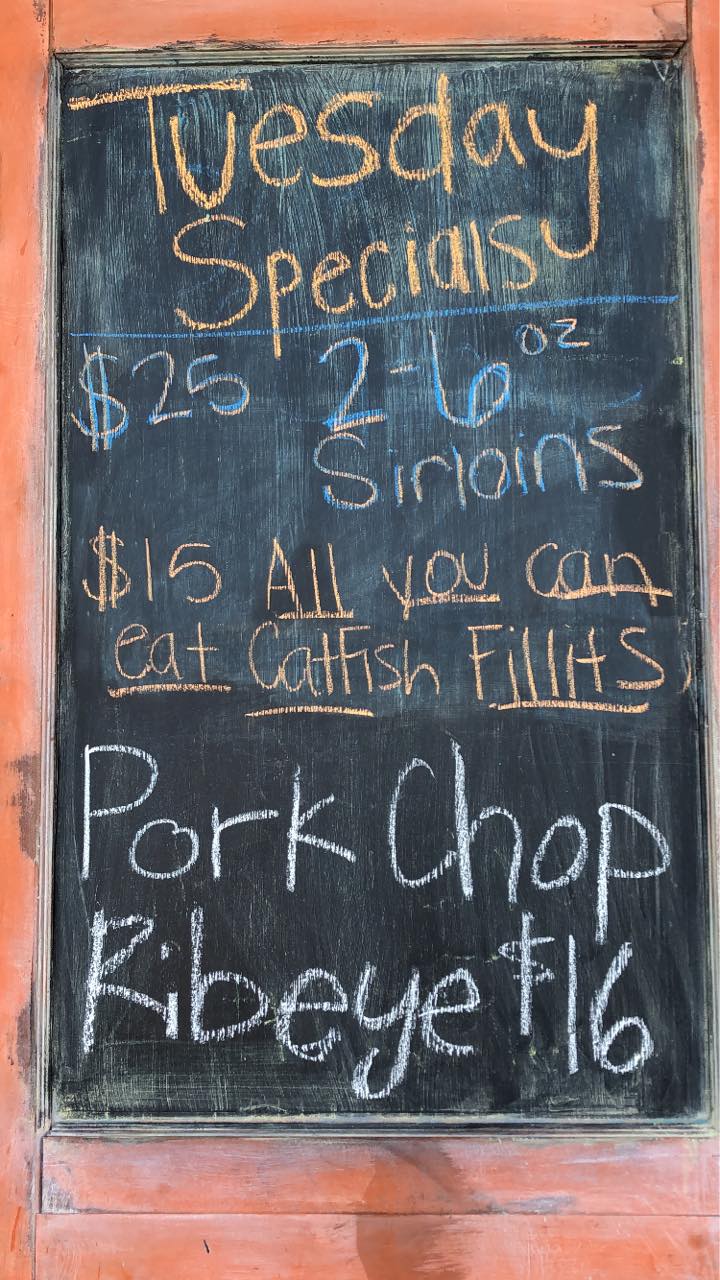 Tuesday
Specials
$25 2-6 oz
Sirloins
$15 All you can
eat Catfish Fillits
Pork Chop
Ribeye $16